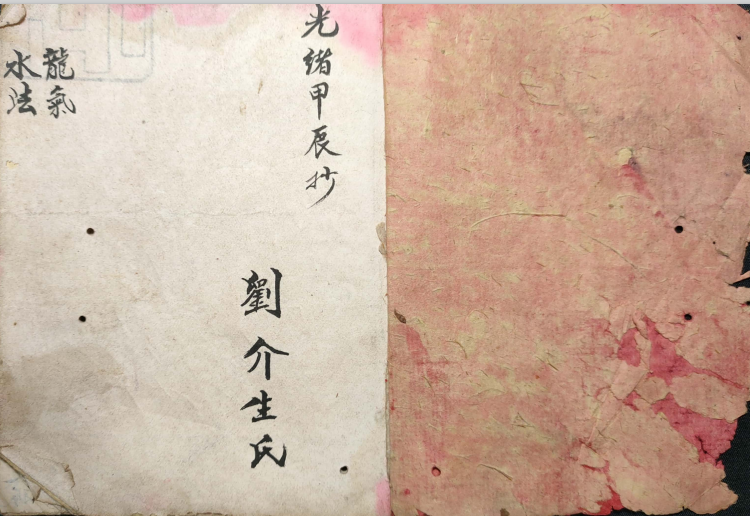 光緒甲辰抄
劉介生氏
龍氣
水法